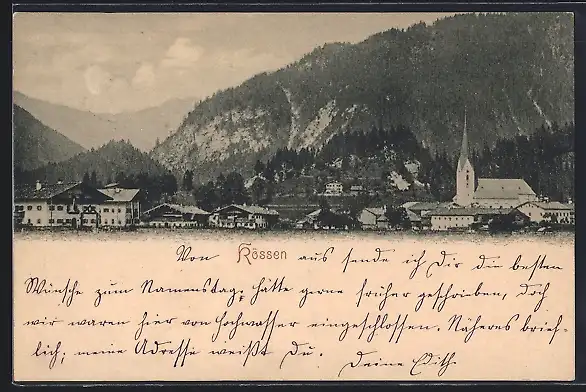 Von Kössen aus sende ich Dir die besten
Wünsche zum Namenstag; hätte gerne früher geschrieben, doch
wir waren hier von Hochwasser eingeschlossen. Näheres brief-
lich; meine Adresse weißt Du. Deine Edith.